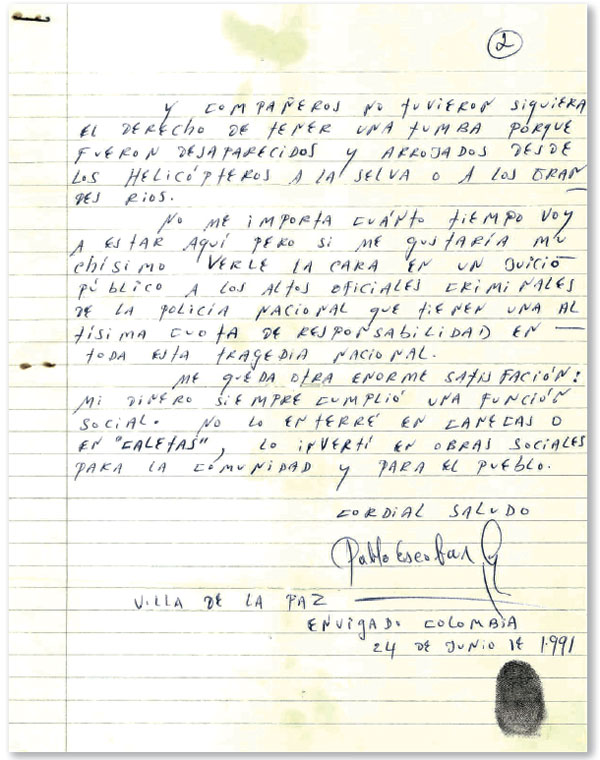 2
Y COMPAÑEROS NO TUVIERON SIQUIERA
EL DERECHO DE TENER UNA TUMBA PORQUE
FUERON DESAPARECIDOS Y ARROJADOS DESDE
LOS HELICÓPTEROS A LA SELVA O A LOS GRAN
DES RIOS.
NO ME IMPORTA CUÁNTO TIEMPO VOY
A ESTAR AQUÍ PERO SI ME GUSTARÍA MU
CHÍSIMO VERLE LA CARA EN UN JUICIO
PÚBLICO A LOS ALTOS OFICIALES CRIMINALES
DE LA POLICÍA NACIONAL QUE TIENEN UNA AL
TÍSIMA CUOTA DE RESPONSABILIDAD EN —
TODA ESTA TRAGEDIA NACIONAL.
ME QUEDA OTRA ENORME SATISFACIÓN:
MI DINERO SIEMPRE CUMPLIÓ UNA FUNCIÓN
SOCIAL. NO LO ENTERRÉ EN CANECAS O
EN "CALETAS", LO INVERTÍ EN OBRAS SOCIALES
PARA LA COMUNIDAD Y PARA EL PUEBLO.
CORDIAL SALUDO
Pablo Escobar G
VILLA DE LA PAZ
ENVIGADO COLOMBIA
24 DE JUNIO DE 1.991